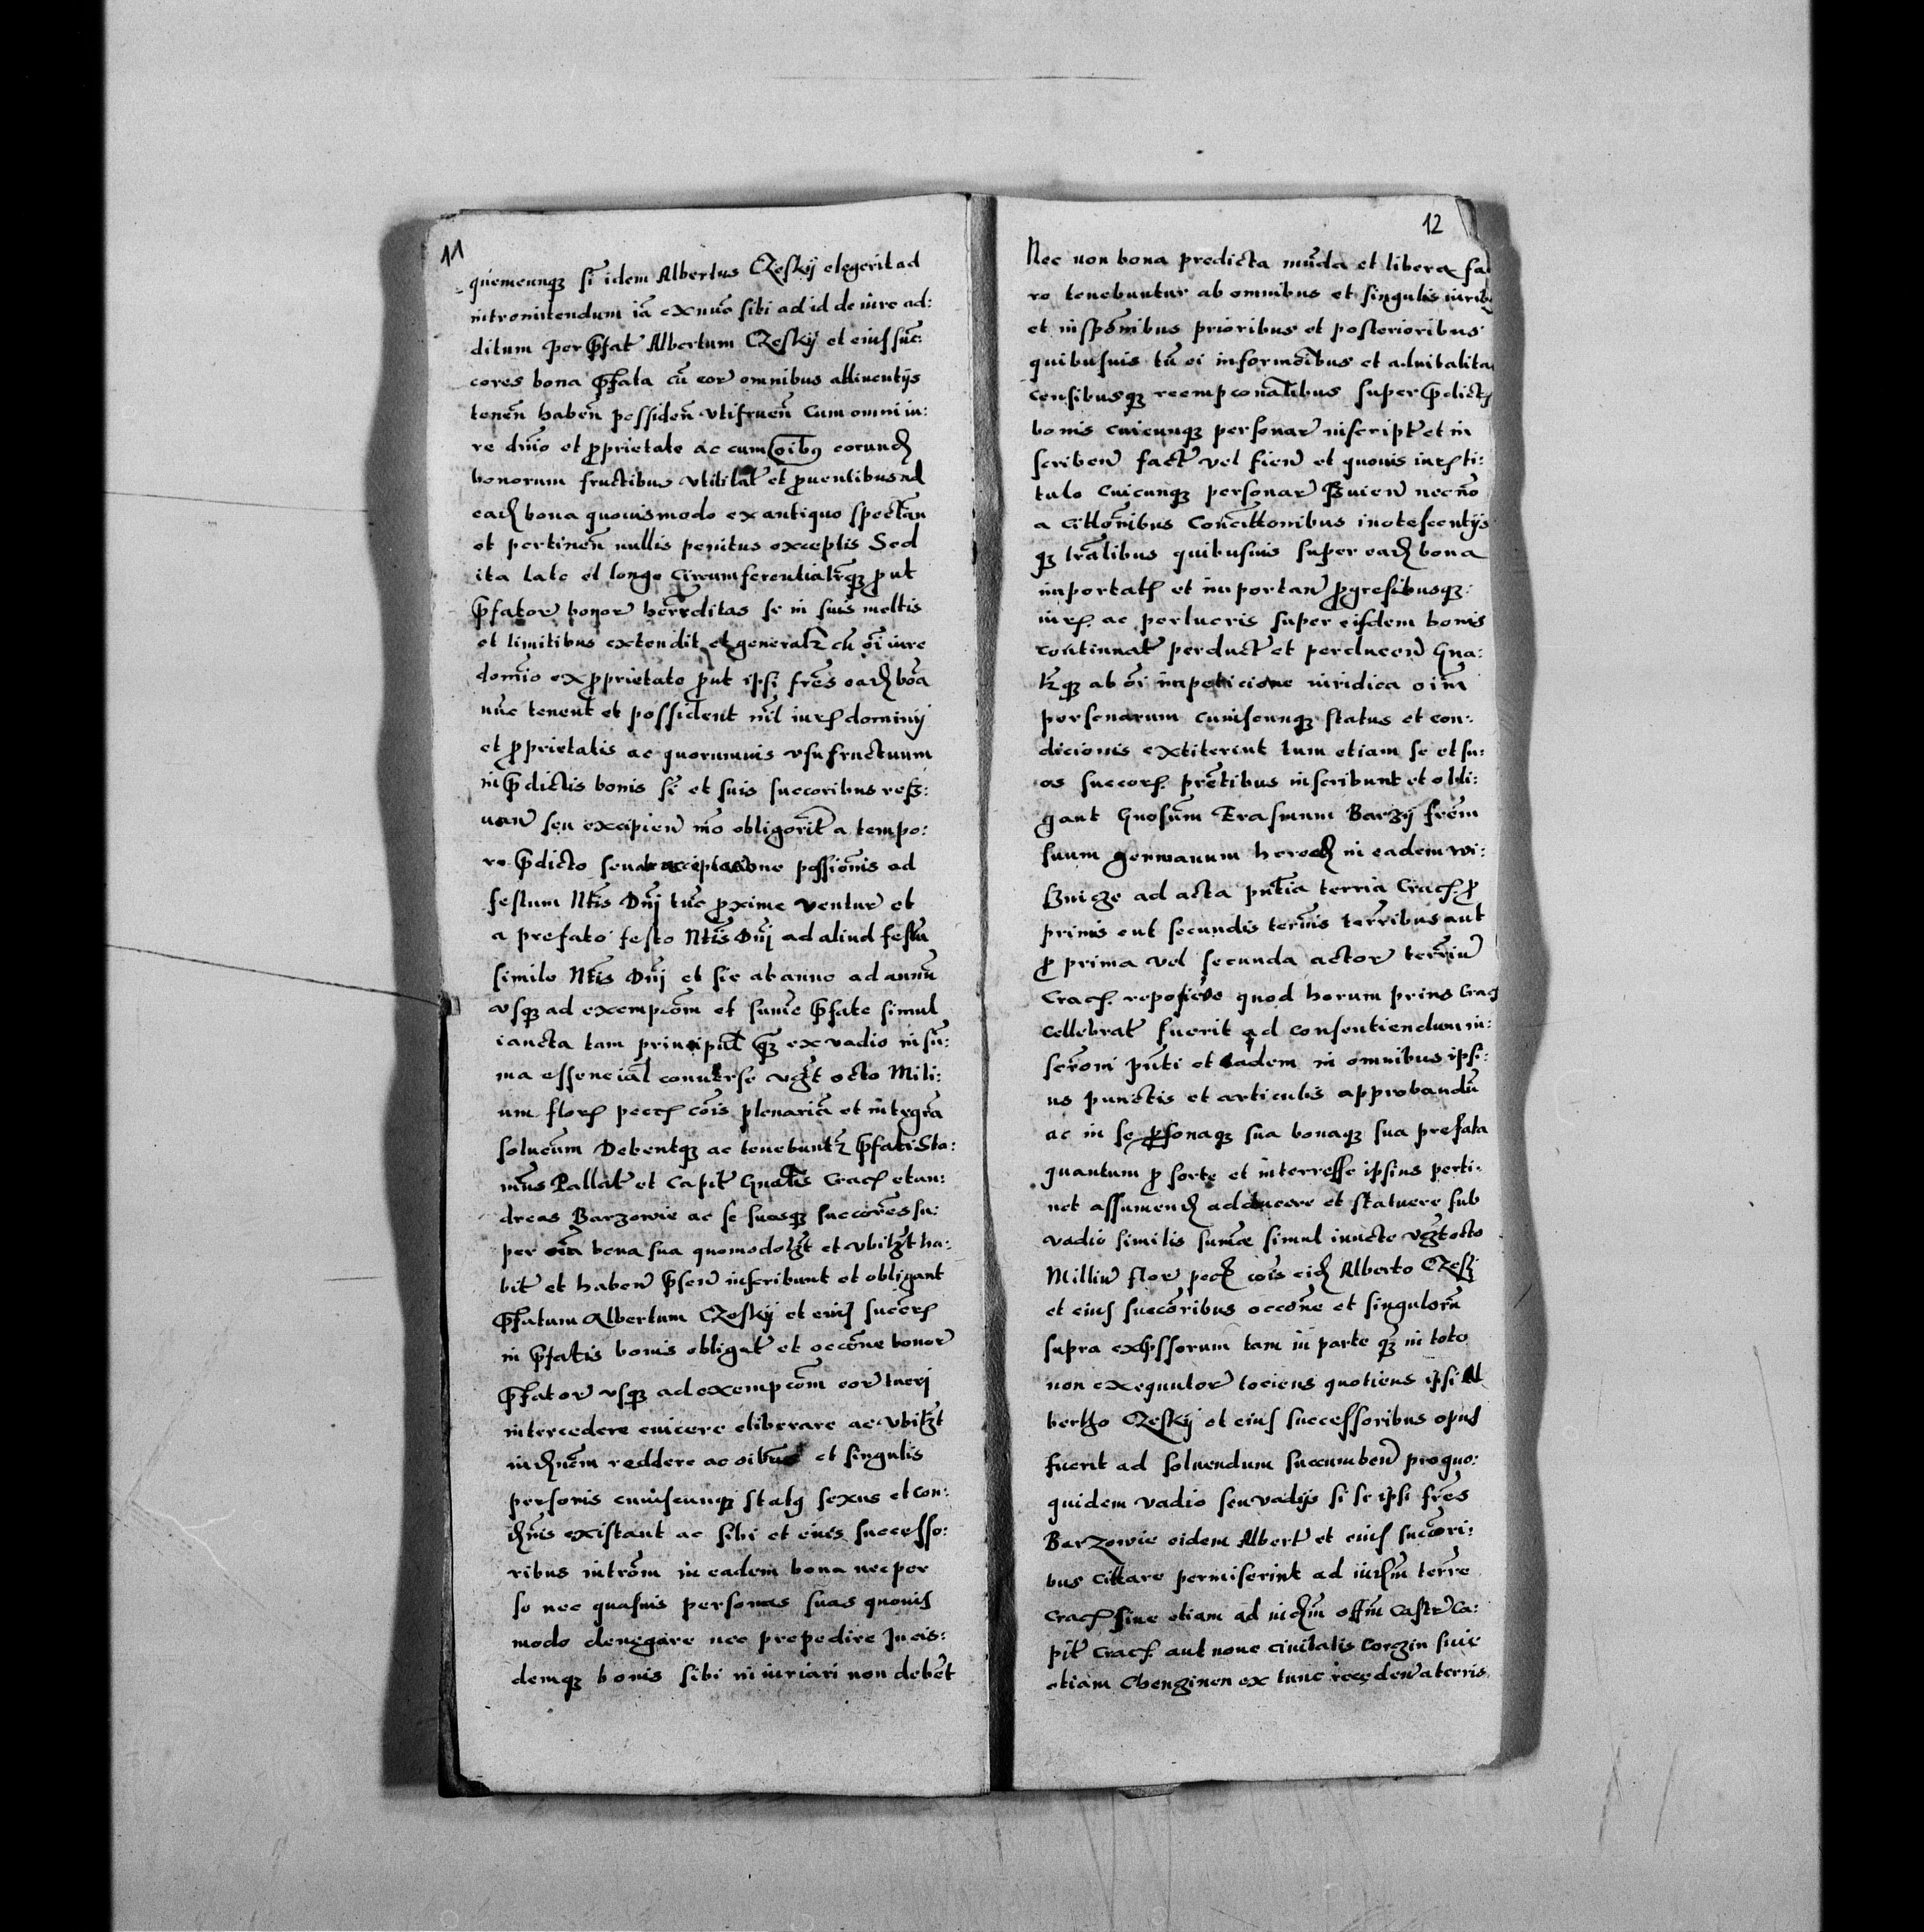 11
quemcunqꝫ si idem Albertus Czeskÿ elegerit ad
intromittendum iā ex nūc sibi ad id de iure ad:
ditum per p̄fat Albertum Czeskÿ et eius suc:
cores bona p̄fata cū eor omnibus attinentÿs
tenen̄ haben̄ possiden̄ vtifruen̄ Cum omni iu:
re dn̄io et proprietate ac cum oībꝰ eorund
bonorum fructibus vtilitat et prouentibus ad
ead bona quouismodo ex antiquo spectan̄
et pertinen̄ nullis penitus exceptis Sed
ita late et longe Circumferentialrqꝫ prout
p̄fator bonor hereditas se in suis meltis
et limitibus extendit et generalr cū oī iure
domīo ex proprietate prout ipsi frēs ead bōa
nūc tenent et possident nīl iur dominÿ
et proprietatis ac quorumuis vsufructuum
in p̄dictis bonis sī et suis succoribus res:
uan̄ seu excipien̄ īmo obligorit a tempo:
re p̄dicto seu ab acceptacione possiōnis ad
festum Ntīs Dnī tūc proxime ventur et
a prefato festo Ntīs Dnī ad aliud festū
simile Ntīs Dnī et sic ab anno ad annū
vsqꝫ ad exempcōm et sume p̄fate simul
iancta tam principal qꝫ ex vadio in sū:
ma essencial conuerse vꝫt octo Mili:
um flor pecc cōis plenariā et integrā
solucūm Debentqꝫ ac tenebuntr p̄fati Sta:
nīus Pallat et Capit Gnalīs Crac et an:
dreas Barzowie ac se suasqꝫ succores su:
per oīa bona sua quomodolꝫt et vbilꝫt ha:
bit et haben̄ p̄sen̄ inscribunt et obligant
p̄fatum Albertum Czeskÿ et eius succor
in p̄fatis bonis obligat et occōne bonor
p̄fator vsqꝫ ad exempcōm eor tueri
intercedere euicere eliberare ac vbilꝫt
reddere ac oībus et singulis
personis cuiuscunqꝫ statꝰ sexus et con:
dnis existant ac sibi et eius successo:
ribus intrōm in eadem bona nec per
se nec quasuis personas suas quouis
modo denegare nec prepedire In eis:
demqꝫ bonis sibi iniuriari non debēt
12
Nec non bona predicta mūda et libera fa
re tenebuntur ab omnibus et singulis iuribꝫ
et inspcōnibus prioribus et posterioribus
quibusuis tū ei et aduitalita
Censibusqꝫ reempconalibus super p̄dictꝭ
bonis cuicunqꝫ personar inscript et in
scriben̄ fact vel fien̄ et quouis iur ti:
tulo Cuicunqꝫ personar nec nō
a Citōnibus inotescentÿs
qꝫ trālibus quibusuis super ead bona
importat et importan̄ progressibusqꝫ
iur ac perlucris super eisdem bonis
continuat perduct et perducen̄ Gna:
lrqꝫ ab oī impeticione iuridica oim̄
personarum cuiuscunqꝫ status et con:
dicionis extiterint tum etiam se et su:
os succor prēntibus inscribunt et obli:
gant Gnosum Erasmum Barzÿ frēm
suum germanum hered in eadem wi:
sznicze ad acta pn̄tia terria Crac pro
primis aut secundis termis terribus aut
pro prima vel secunda actor terriū
Crac reposicōe quod horum prius Crac
cellebrat fuerit ad consentiendum in:
scrōni pn̄ti et eadem in omnibus ipsi:
us punctis et articulis approbandū
ac in se personaqꝫ sua bonaqꝫ sua prefata
quantum pro sorte et interresse ipsius perti:
net assumend adducere et statuere sub
vadio similis sume simul iuncte vꝫt octo
Milliū flor pec cōis eid Alberto Czesk
et eius succoribus occōne et singulorū
supra exp̄ssorum tam in parte qꝫ in toto
non exequutor tociens quotiens ipsi Al
bertho Czeskÿ et eius successoribus opus
fuerit ad soluendum succumben̄ pro quo:
quidem vadio seu vadÿs si se ipsi frēs
Barzowie eidem Albert et eius succori:
bus Cittare permiserint ad terre
Crac siue etiam ad offm̄ Castr Ca:
pit Crac aut noue ciuitatis Corczin siue
etiam Chenzinen ex tunc receden̄ a terris